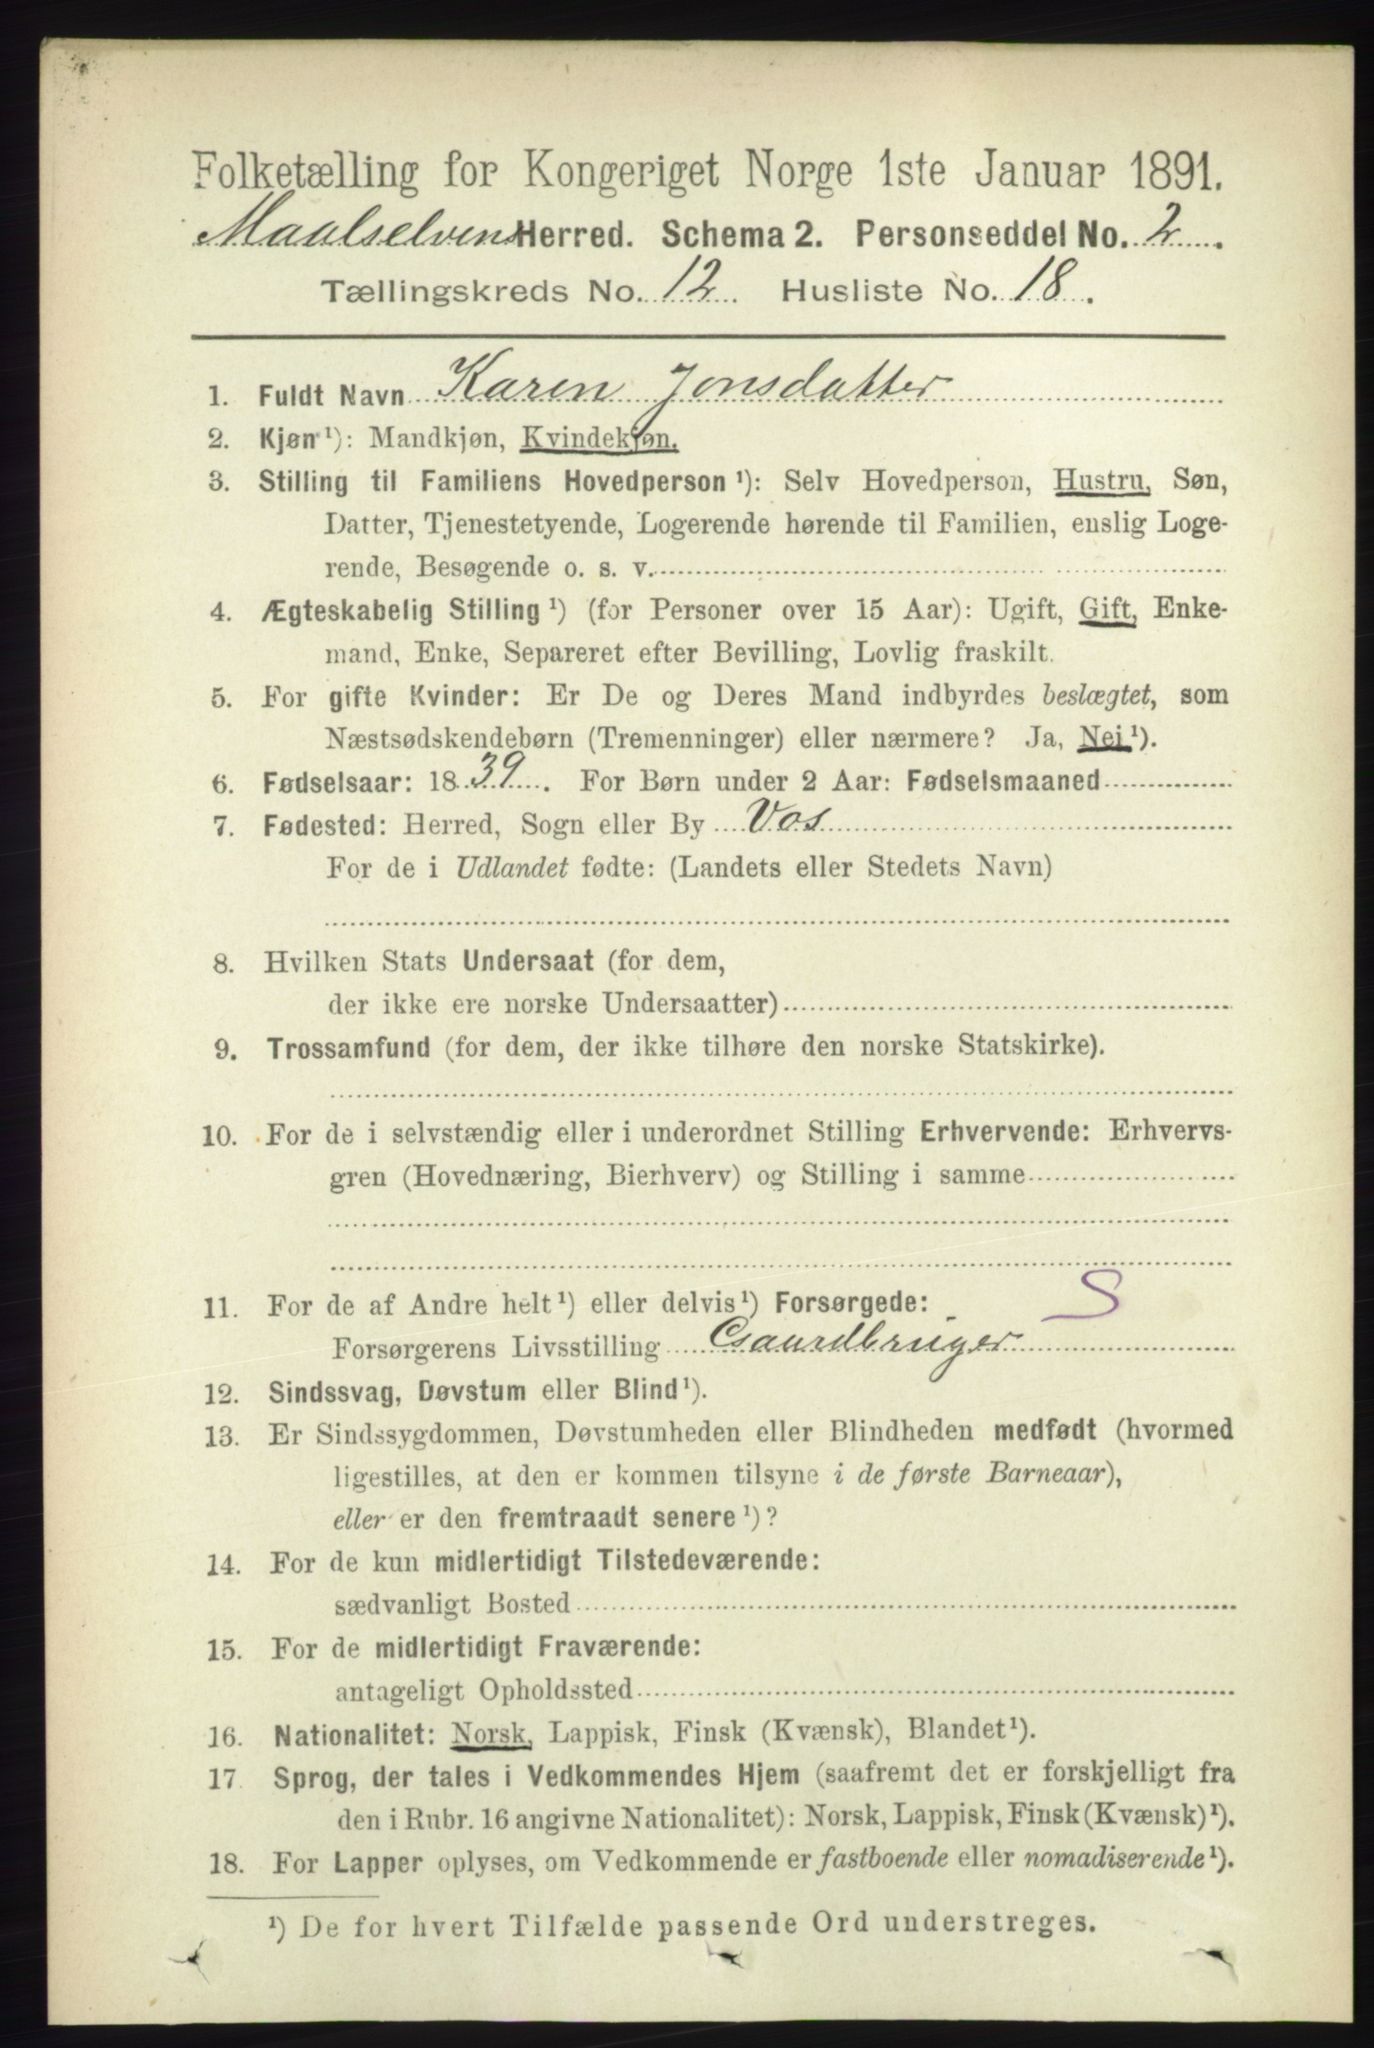 Folketælling for Kongeriget Norge 1ste Januar 1891.
Maalselvens Herred. Schema 2. Personseddel No. 2.
Tællingskreds No. 12. Husliste No. 18.
1. Fuldt Navn Karen Jonsdatter
2. Kjøn ¹): Mandkjøn, Kvindekjøn.
3. Stilling til Familiens Hovedperson ¹): Selv Hovedperson, Hustru, Søn,
Datter, Tjenestetyende, Logerende hørende til Familien, enslig Loge-
rende, Besøgende o. s. v.
4. Ægteskabelig Stilling ¹) (for Personer over 15 Aar): Ugift, Gift, Enke-
mand, Enke, Separeret efter Bevilling, Lovlig fraskilt.
5. For gifte Kvinder: Er De og Deres Mand indbyrdes beslægtet, som
Næstsødskendebørn (Tremenninger) eller nærmere? Ja, Nei ¹).
6. Fødselsaar: 1839. For Børn under 2 Aar: Fødselsmaaned
7. Fødested: Herred, Sogn eller By Vos
For de i Udlandet fødte: (Landets eller Stedets Navn)
8. Hvilken Stats Undersaat (for dem,
der ikke ere norske Undersaatter)
9. Trossamfund (for dem, der ikke tilhøre den norske Statskirke).
10. For de i selvstændig eller i underordnet Stilling Erhvervende: Erhvervs-
gren (Hovednæring, Bierhverv) og Stilling i samme
11. For de af Andre helt ¹) eller delvis ¹) Forsørgede: S
Forsørgerens Livsstilling Gaardbruger
12. Sindssvag, Døvstum eller Blind ¹).
13. Er Sindssygdommen, Døvstumheden eller Blindheden medfødt (hvormed
ligestilles, at den er kommen tilsyne i de første Barneaar),
eller er den fremtraadt senere ¹)?
14. For de kun midlertidigt Tilstedeværende:
sædvanligt Bosted
15. For de midlertidigt Fraværende:
antageligt Opholdssted
16. Nationalitet: Norsk, Lappisk, Finsk (Kvænsk), Blandet ¹).
17. Sprog, der tales i Vedkommendes Hjem (saafremt det er forskjelligt fra
den i Rubr. 16 angivne Nationalitet): Norsk, Lappisk, Finsk (Kvænsk) ¹).
18. For Lapper oplyses, om Vedkommende er fastboende eller nomadiserende ¹).
¹) De for hvert Tilfælde passende Ord understreges.